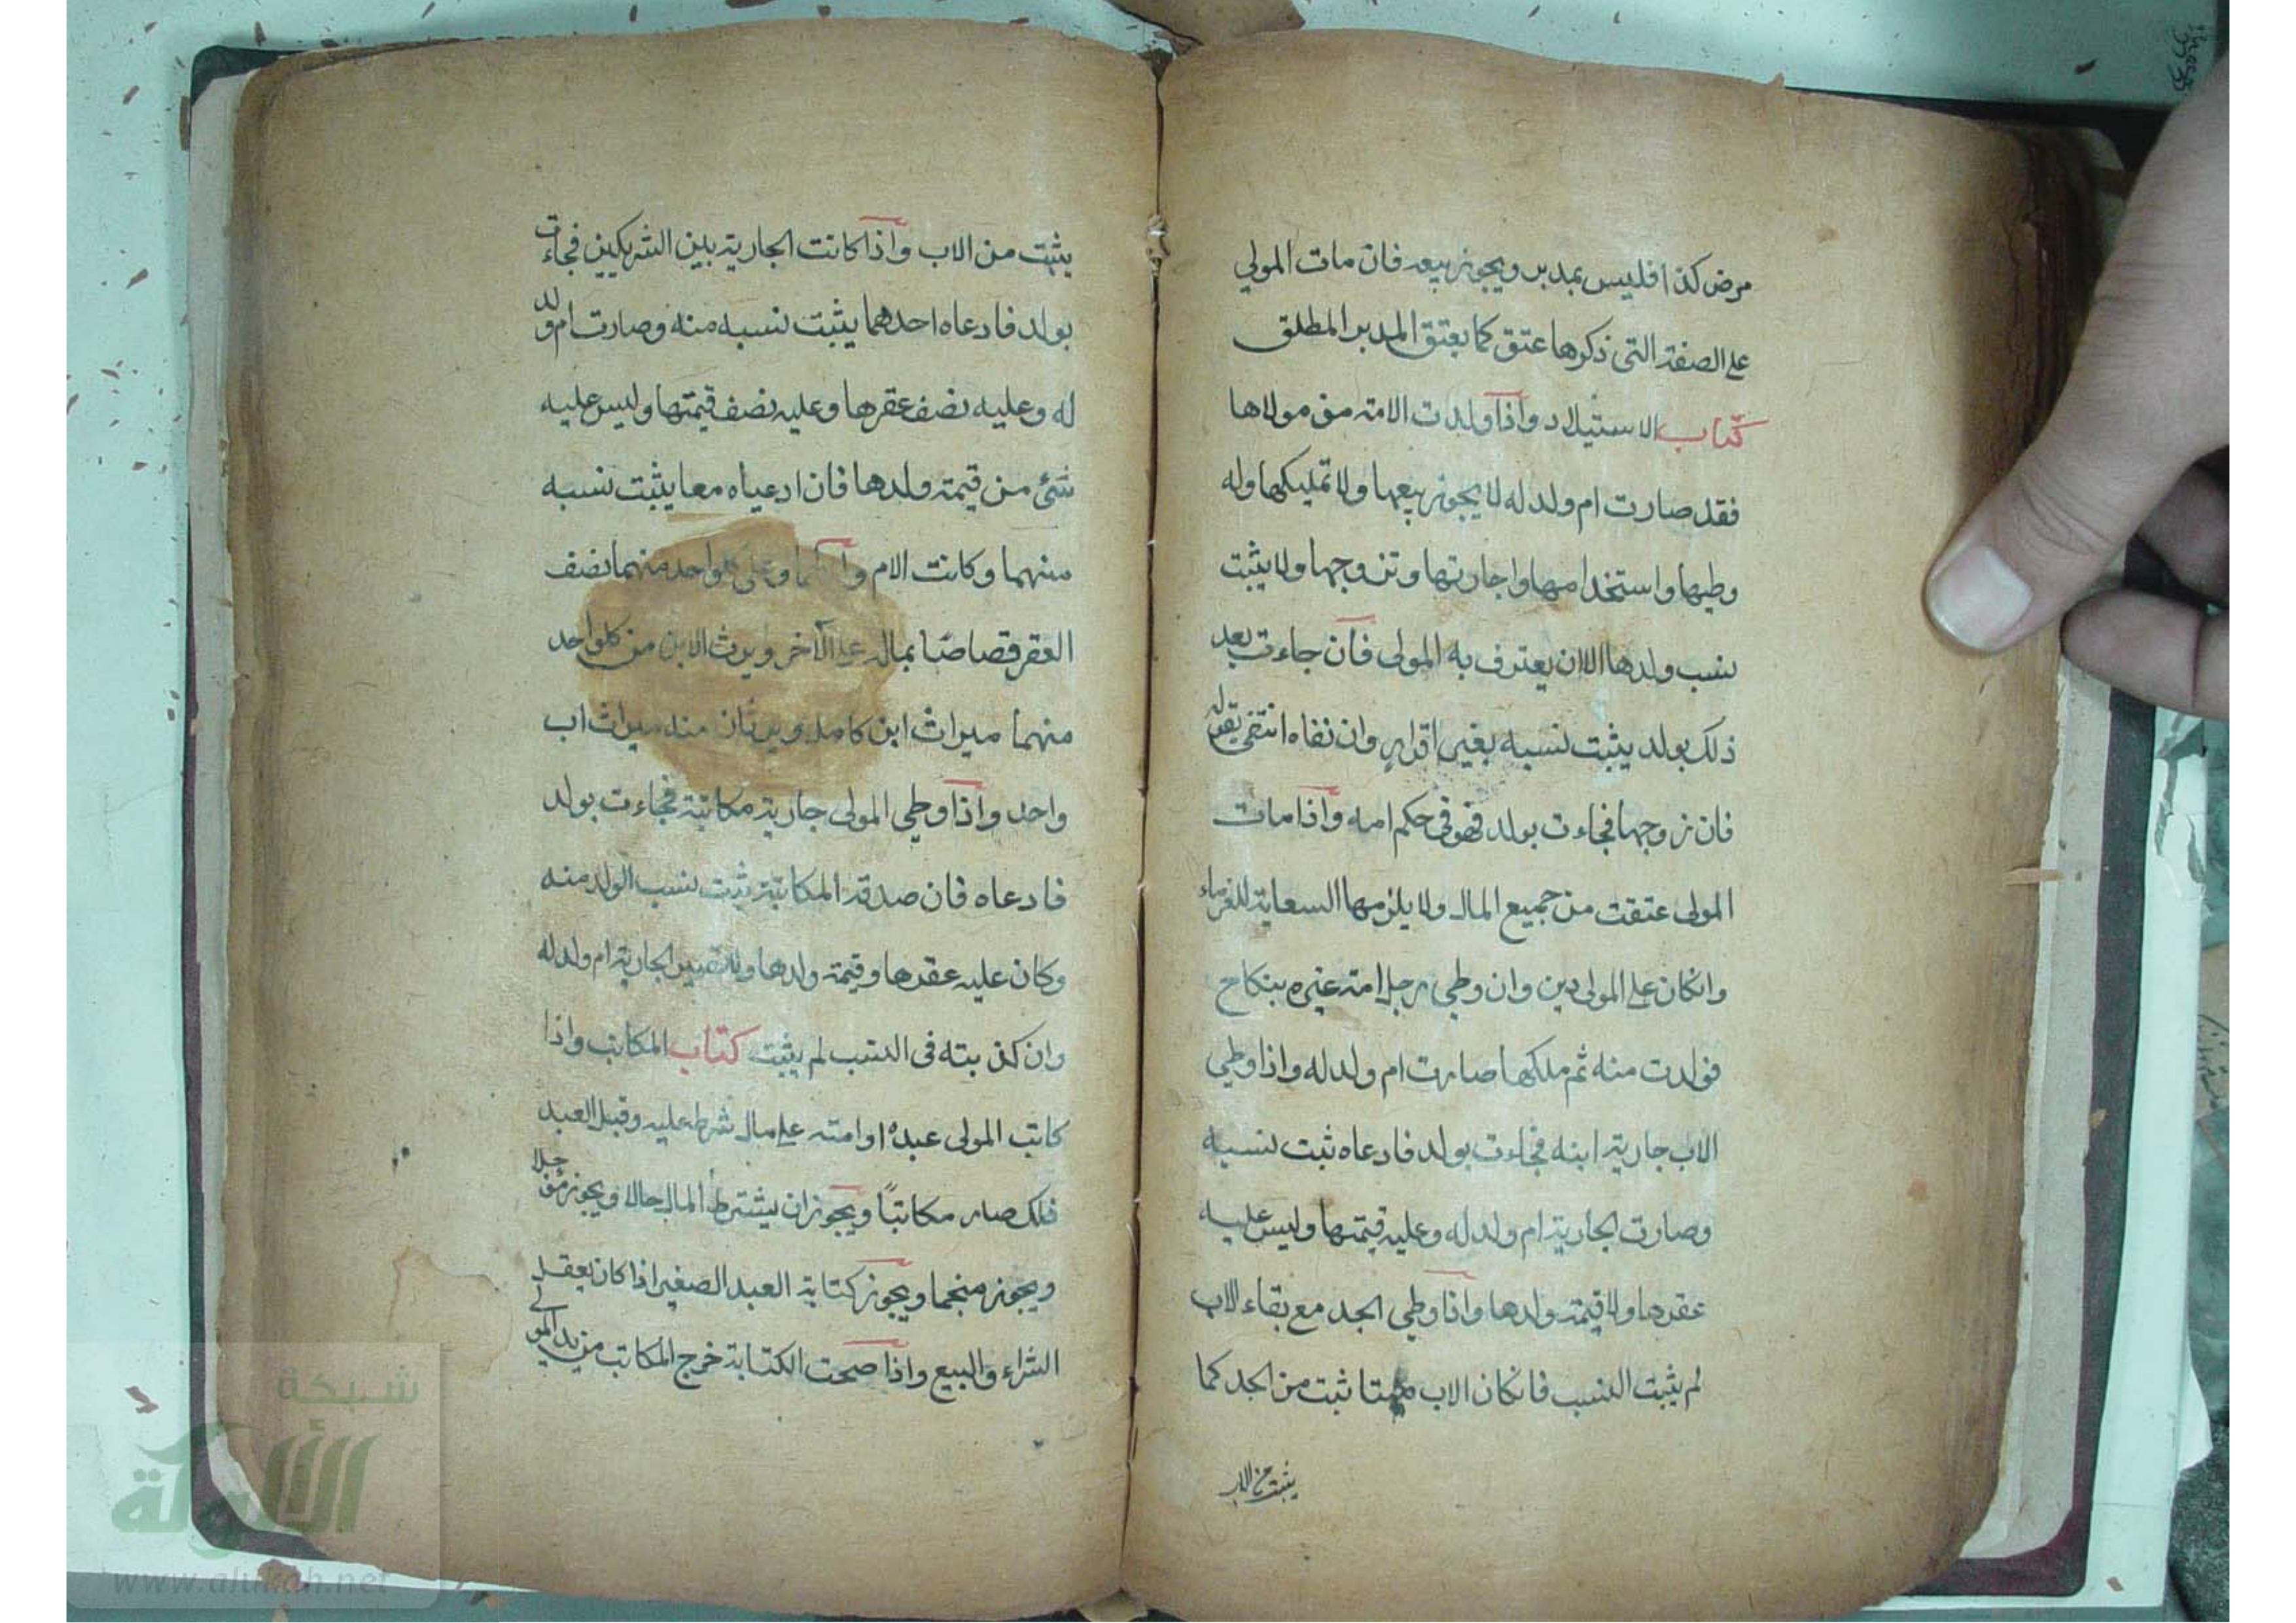 مرض كذا فليس بمدبر ويجوز بيعه فان مات المولي
علي الصفة التي ذكرها عتق كما يعتق المدبر المطلق
كتاب الاستيلاد واذا ولدت الامة من مولاها
فقد صارت ام ولد له لا يجوز بيعها ولا تمليكها وله
وطيها واستخدامها واجارتها وتزوجها ولا يثبت
نسب ولدها الا ان يعترف به المولى فان جاءت بعد
ذلك بولد يثبت نسبه بغير اقراره وان نفاه انتفى بقوله
فان زوجها فجاءت بولد فهو في حكم امه واذا مات
المولى عتقت من جميع المال ولا يلزمها السعاية للغرماء
وانكان علي المولى دين وان وطي رجل امة غيره بنكاح
فولدت منه ثم ملكها صارت ام ولد له واذا وطي
الاب جارية ابنه فجاءت بولد فادعاه ثبت نسبه
وصارت الجارية ام ولد له وعليه قيمتها وليس عليه
عقرها ولا قيمة ولدها واذا وطي الجد مع بقاء الاب
لم يثبت النسب فانكان الاب ميتا ثبت من الجد كما
يثبت من الاب
يثبت من الاب واذا كانت الجارية بين الشريكين فجاءت
بولد فادعاه احدهما يثبت نسبه منه وصارت ام ولد
له وعليه نصف عقرها وعليه نصف قيمتها وليس عليه
شئ من قيمة ولدها فان ادعياه معا يثبت نسبه
منهما وكانت الام وعلى كلواحد منهما نصف
العقر قصاصا بماله علي الآخر ويرث الابن من كلواحد
منهما ميراث ابن كامل ويرثان منه ميراث اب
واحد واذا وطي المولى جارية مكاتبة فجاءت بولد
فادعاه فان صدقه المكاتبة ثبت نسب الولد منه
وكان عليه عقرها وقيمة ولدها ولا تصير الجارية ام ولد له
وان كذبته في النسب لم يثبت كتاب المكاتب واذا
كاتب المولى عبده او امته علي مال شرط عليه وقبل العبد
ذلك صار مكاتبا ويجوز ان يشترط المال حالا ويجوز مؤجلا
ويجوز منجما ويجوز كتابة العبد الصغير اذا كان يعقل
الشراء والبيع واذا صحت الكتابة خرج المكاتب من يد المولي
شبكة
الألوكة
www.alukah.net